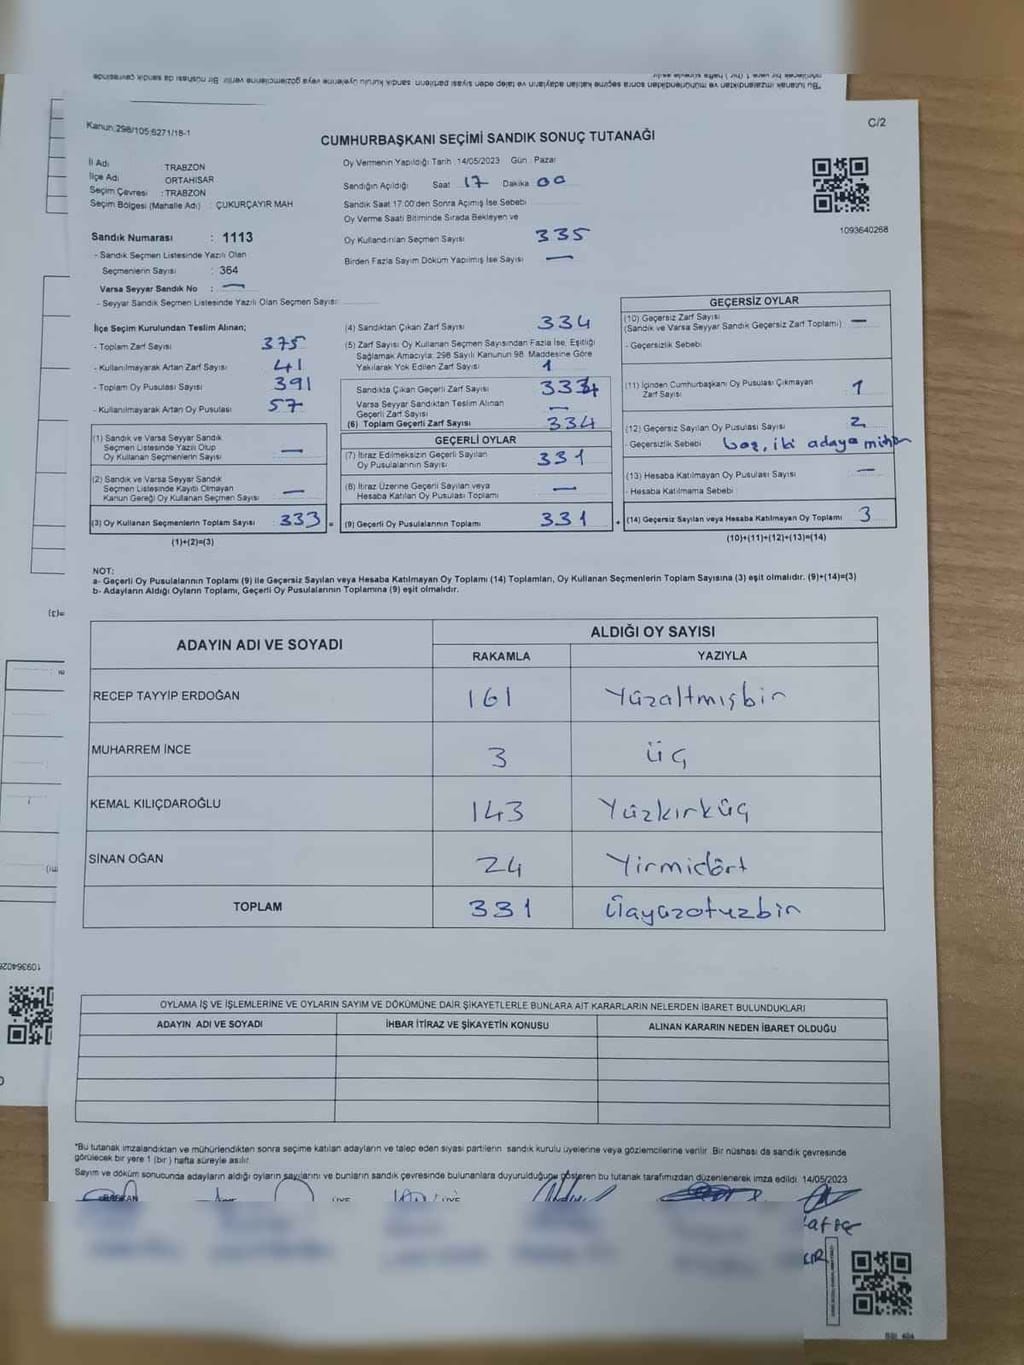 *Bu tutanak imzalandıktan ve mühürlendikten sonra seçime katılan adayların ve talep eden siyasi partilerin sandık kurulu üyelerine veya gözlemcilerine verilir. Bir nüshası da sandık çevresinde
görülecek bir yere 1 (bir) hafta süreyle asılır.
Kanun:298/105;6271/18-1
C/2
CUMHURBAŞKANI SEÇİMİ SANDIK SONUÇ TUTANAĞI
İl Adı : TRABZON
İlçe Adı : ORTAHİSAR
Seçim Çevresi : TRABZON
Seçim Bölgesi (Mahalle Adı) : ÇUKURÇAYIR MAH
Oy Vermenin Yapıldığı Tarih : 14/05/2023 Gün : Pazar
Sandığın Açıldığı Saat 17 Dakika 00
Sandık Saat 17:00'den Sonra Açılmış İse Sebebi
Oy Verme Saati Bitiminde Sırada Bekleyen ve
Oy Kullandırılan Seçmen Sayısı 335
Birden Fazla Sayım Döküm Yapılmış İse Sayısı —
1093640268
Sandık Numarası : 1113
- Sandık Seçmen Listesinde Yazılı Olan
Seçmenlerin Sayısı : 364
Varsa Seyyar Sandık No : —
- Seyyar Sandık Seçmen Listesinde Yazılı Olan Seçmen Sayısı:
İlçe Seçim Kurulundan Teslim Alınan;
- Toplam Zarf Sayısı 375
- Kullanılmayarak Artan Zarf Sayısı 41
- Toplam Oy Pusulası Sayısı 391
- Kullanılmayarak Artan Oy Pusulası 57
(1) Sandık ve Varsa Seyyar Sandık
Seçmen Listesinde Yazılı Olup
Oy Kullanan Seçmenlerin Sayısı —
(2) Sandık ve Varsa Seyyar Sandık
Seçmen Listesinde Kayıtlı Olmayan
Kanun Gereği Oy Kullanan Seçmen Sayısı —
(3) Oy Kullanan Seçmenlerin Toplam Sayısı 333
(1)+(2)=(3)
(4) Sandıktan Çıkan Zarf Sayısı 334
(5) Zarf Sayısı Oy Kullanan Seçmen Sayısından Fazla İse, Eşitliği
Sağlamak Amacıyla; 298 Sayılı Kanunun 98. Maddesine Göre
Yakılarak Yok Edilen Zarf Sayısı 1
Sandıkta Çıkan Geçerli Zarf Sayısı 334
Varsa Seyyar Sandıktan Teslim Alınan
Geçerli Zarf Sayısı —
(6) Toplam Geçerli Zarf Sayısı 334
GEÇERLİ OYLAR
(7) İtiraz Edilmeksizin Geçerli Sayılan
Oy Pusulalarının Sayısı 331
(8) İtiraz Üzerine Geçerli Sayılan veya
Hesaba Katılan Oy Pusulası Toplamı —
(9) Geçerli Oy Pusulalarının Toplamı 331
GEÇERSİZ OYLAR
(10) Geçersiz Zarf Sayısı —
(Sandık ve Varsa Seyyar Sandık Geçersiz Zarf Toplamı)
- Geçersizlik Sebebi
(11) İçinden Cumhurbaşkanı Oy Pusulası Çıkmayan
Zarf Sayısı 1
(12) Geçersiz Sayılan Oy Pusulası Sayısı 2
- Geçersizlik Sebebi boş, iki adaya mühür
(13) Hesaba Katılmayan Oy Pusulası Sayısı —
- Hesaba Katılmama Sebebi :
(14) Geçersiz Sayılan veya Hesaba Katılmayan Oy Toplamı 3
(10)+(11)+(12)+(13)=(14)
NOT:
a- Geçerli Oy Pusulalarının Toplamı (9) ile Geçersiz Sayılan veya Hesaba Katılmayan Oy Toplamı (14) Toplamları, Oy Kullanan Seçmenlerin Toplam Sayısına (3) eşit olmalıdır. (9)+(14)=(3)
b- Adayların Aldığı Oyların Toplamı, Geçerli Oy Pusulalarının Toplamına (9) eşit olmalıdır.
ADAYIN ADI VE SOYADI ALDIĞI OY SAYISI
RAKAMLA YAZIYLA
RECEP TAYYİP ERDOĞAN 161 Yüzaltmışbir
MUHARREM İNCE 3 üç
KEMAL KILIÇDAROĞLU 143 Yüzkırküç
SİNAN OĞAN 24 Yirmidört
TOPLAM 331 Üçyüzotuzbir
OYLAMA İŞ VE İŞLEMLERİNE VE OYLARIN SAYIM VE DÖKÜMÜNE DAİR ŞİKAYETLERLE BUNLARA AİT KARARLARIN NELERDEN İBARET BULUNDUKLARI
ADAYIN ADI VE SOYADI İHBAR İTİRAZ VE ŞİKAYETİN KONUSU ALINAN KARARIN NEDEN İBARET OLDUĞU
*Bu tutanak imzalandıktan ve mühürlendikten sonra seçime katılan adayların ve talep eden siyasi partilerin sandık kurulu üyelerine veya gözlemcilerine verilir. Bir nüshası da sandık çevresinde
görülecek bir yere 1 (bir) hafta süreyle asılır.
Sayım ve döküm sonucunda adayların aldığı oyların sayılarını ve bunların sandık çevresinde bulunanlara duyurulduğunu gösteren bu tutanak tarafımızdan düzenlenerek imza edildi. 14/05/2023
BAŞKAN